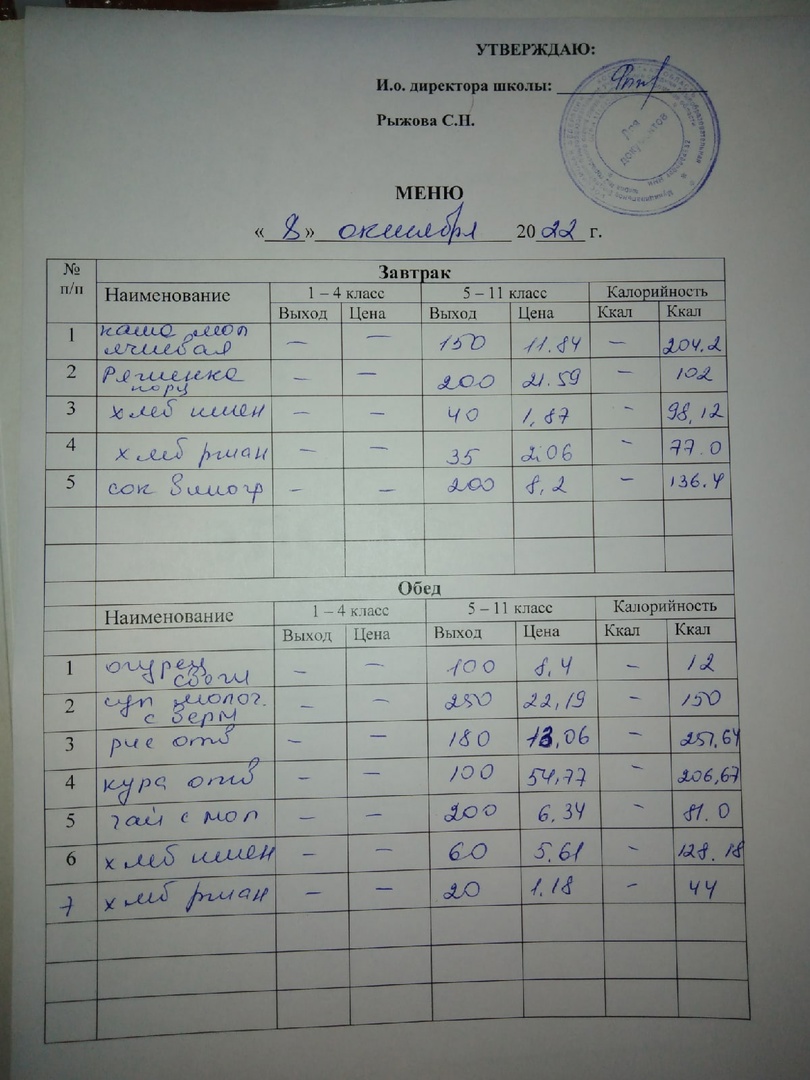 УТВЕРЖДАЮ:
И.о. директора школы:
Рыжова С.Н.
Для документов
МЕНЮ
« 8 » октября 2022 г.
№ п/п Завтрак
Наименование 1 – 4 класс 5 – 11 класс Калорийность
Выход Цена Выход Цена Ккал Ккал
1 каша мол ячневая — — 150 11.84 — 204.2
2 Ряженка порц — — 200 21.59 — 102
3 хлеб пшен — — 40 1,87 — 98,12
4 хлеб ржан — — 35 2.06 — 77.0
5 сок виногр — — 200 8,2 — 136.4
Обед
Наименование 1 – 4 класс 5 – 11 класс Калорийность
Выход Цена Выход Цена Ккал Ккал
1 огурец свеж — — 100 8,4 — 12
2 суп молоч. с верм — — 250 22,19 — 150
3 рис отв — — 180 13,06 — 251,64
4 кура отв — — 100 54,77 — 206,67
5 чай с мол — — 200 6,34 — 81.0
6 хлеб пшен — — 60 5,61 — 128.18
7 хлеб ржан — — 20 1.18 — 44